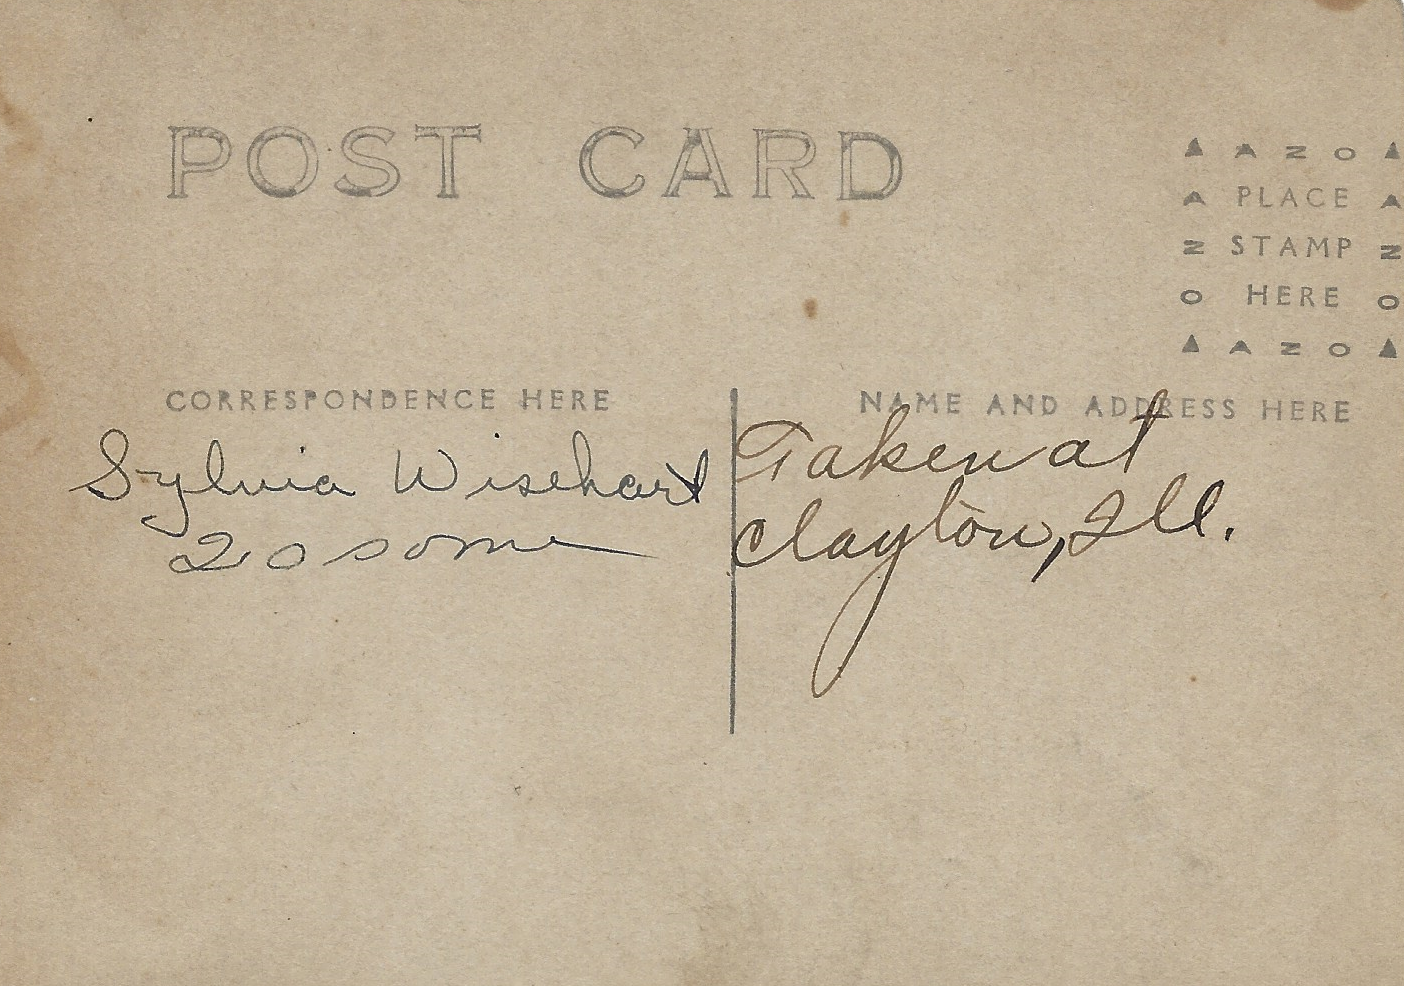 POST CARD
▲ A Z O ▲
A PLACE A
Z STAMP Z
O HERE O
▲ A Z O ▲
CORRESPONDENCE HERE
Sylvia Wisehart
20 some
NAME AND ADDRESS HERE
Taken at
Clayton, Ill.